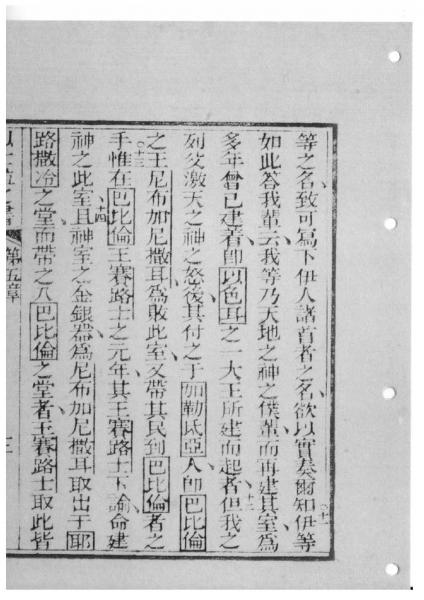 等之名致可寫下伊人諸首者之名欲以實奏爾知伊等
十一
如此答我輩云我等乃天地之神之僕輩而再建其室爲
多年曾已建着卽以色耳之一大王所建而起者但我之
十二
列父激天之神之怒後其付之于加勒氐亞人卽巴比倫
之王尼布加尼撒耳爲敗此室又帶其民到巴比倫者之
十三
手惟在巴比倫王賽路士之元年其王賽路士下諭命建
十四
神之此室且神室之金銀器爲尼布加尼撒耳取出于耶
路撒冶之堂而帶之入巴比倫之堂者王賽路士取此皆
第五章